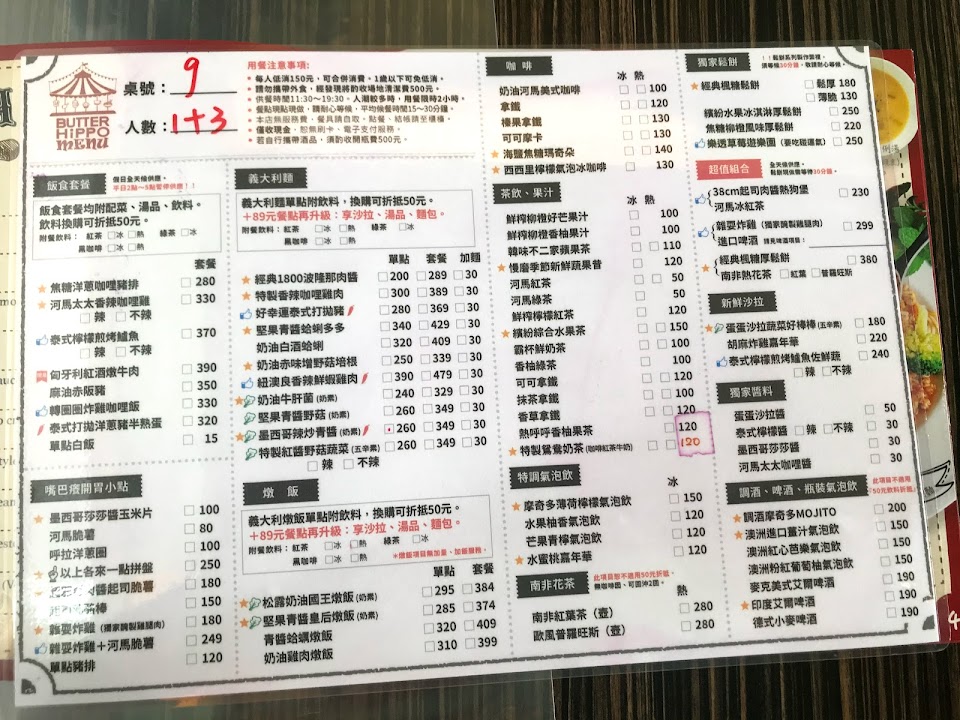 BUTTER
HIPPO
MENU
桌號：9
人數：1+3
用餐注意事項:
每人低消150元，可合併消費。1歲以下可免低消。
請勿攜帶外食，經發現將酌收場地清潔費500元。
供餐時間11:30～19:30。人潮較多時，用餐限時2小時。
餐點現點現做，請耐心等候，平均備餐時間15～30分鐘。
本店無服務費，餐具請自取，點餐、結帳請至櫃檯。
僅收現金，恕無刷卡、電子支付服務。
若自行攜帶酒品，須酌收開瓶費500元。
飯食套餐
假日全天候供應。
平日2點～5點暫停供應！！
飯食套餐均附配菜、湯品、飲料。
飲料換購可折抵50元。
附餐飲料： 紅茶 □冰 □熱 綠茶 □冰 □熱
黑咖啡 □冰 □熱
套餐
焦糖洋蔥咖哩豬排 □280
河馬太太香辣咖哩雞 □330
□辣 □不辣
泰式檸檬煎烤鱸魚 □370
□辣 □不辣
匈牙利紅酒燉牛肉 □390
麻油赤阪豬 □350
轉圈圈炸雞咖哩飯 □330
泰式打拋洋蔥豬半熟蛋 □320
單點白飯 □15
嘴巴癢開胃小點
墨西哥莎莎醬玉米片 □100
河馬脆薯 □80
呼拉洋蔥圈 □100
以上各來一點拼盤 □250
醬起司脆薯 □180
棒 □150
雜耍炸雞（獨家醃製雞腿肉） □180
雜耍炸雞＋河馬脆薯 □249
單點豬排 □120
義大利麵
義大利麵單點附飲料，換購可折抵50元。
＋89元餐點再升級：享沙拉、湯品、麵包。
附餐飲料： 紅茶 □冰 □熱 綠茶 □冰 □熱
黑咖啡 □冰 □熱
單點 套餐 加麵
經典1800波隆那肉醬 □200 □289 □30
特製香辣咖哩雞肉 □300 □389 □30
好幸運泰式打拋豬 □280 □369 □30
堅果青醬蛤蜊多多 □340 □429 □30
奶油白酒蛤蜊 □320 □409 □30
奶油赤味增野菇培根 □250 □339 □30
紐澳良香辣鮮蝦雞肉 □390 □479 □30
奶油牛肝菌（奶素） □240 □329 □30
堅果青醬野菇（奶素） □260 □349 □30
墨西哥辣炒青醬（奶素） □260 □349 □30
特製紅醬野菇蔬菜（五辛素） □260 □349 □30
□辣 □不辣
燉飯
義大利燉飯單點附飲料，換購可折抵50元。
＋89元餐點再升級：享沙拉、湯品、麵包。
附餐飲料： 紅茶 □冰 □熱 綠茶 □冰 □熱
黑咖啡 □冰 □熱 *燉飯項目無加量、加飯服務。
單點 套餐
松露奶油國王燉飯（奶素） □295 □384
堅果青醬皇后燉飯（奶素） □285 □374
青醬蛤蠣燉飯 □320 □409
奶油雞肉燉飯 □310 □399
咖啡
冰 熱
奶油河馬美式咖啡 □ □100
拿鐵 □ □120
榛果拿鐵 □ □130
可可摩卡 □ □130
海鹽焦糖瑪奇朵 □ □140
西西里檸檬氣泡冰咖啡 □130
茶飲、果汁
冰 熱
鮮榨柳橙好芒果汁 □100
鮮榨柳橙香柚果汁 □100
韓味不二家蘋果茶 □ □110
慢磨季節新鮮蔬果昔 □120
河馬紅茶 □ □50
河馬綠茶 □50
鮮榨檸檬紅茶 □100
繽紛綜合水果茶 □ □150
霸杯鮮奶茶 □ □100
香柚綠茶 □100
可可拿鐵 □ □120
抹茶拿鐵 □ □100
香草拿鐵 □ □100
熱呼呼香柚果茶 □120
特製鴛鴦奶茶（咖啡紅茶牛奶） □ □120
特調氣泡飲
冰
摩奇多薄荷檸檬氣泡飲 □150
水果柚香氣泡飲 □120
芒果青檸氣泡飲 □120
水蜜桃嘉年華 □120
南非花茶
此項目恕不適用50元折抵。
無咖啡因，可回沖2回。
熱
南非紅葉茶（壺） □280
歐風普羅旺斯（壺） □280
獨家鬆餅
！！鬆餅系列製作費時，
須等候30分鐘，敬請耐心等候。
經典楓糖鬆餅 □鬆厚 180
□薄脆 130
繽紛水果冰淇淋厚鬆餅 □250
焦糖柳橙風味厚鬆餅 □220
樂透草莓遊樂園（要吃碰運氣） □250
超值組合
全天候供應。
鬆餅現做需等待30分鐘。
38cm起司肉醬熱狗堡 □230
河馬冰紅茶
雜耍炸雞（獨家醃製雞腿肉） □299
進口啤酒 請見啤酒項目：
經典楓糖厚鬆餅 □380
南非熱花茶 □紅葉 □普羅旺斯
新鮮沙拉
蛋蛋沙拉蔬菜好棒棒（五辛素） □180
胡麻炸雞嘉年華 □220
泰式檸檬煎烤鱸魚佐鮮蔬 □240
□辣 □不辣
獨家醬料
蛋蛋沙拉醬 □50
泰式檸檬醬 □辣 □不辣 □30
墨西哥莎莎醬 □30
河馬太太咖哩醬 □30
調酒、啤酒、瓶裝氣泡飲
此項目不適用
50元飲料折抵。
調酒摩奇多MOJITO □200
澳洲進口薑汁氣泡飲 □150
澳洲紅心芭樂氣泡飲 □150
澳洲粉紅葡萄柚氣泡飲 □150
麥克美式艾爾啤酒 □190
印度艾爾啤酒 □190
德式小麥啤酒 □190